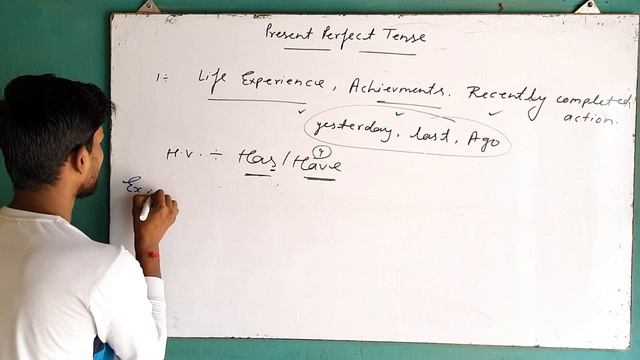 Present Perfect Tense
1÷ Life Experience, Achievments. Recently completed action.
yesterday, last, Ago
H.V. ÷ Has / Have
Ex